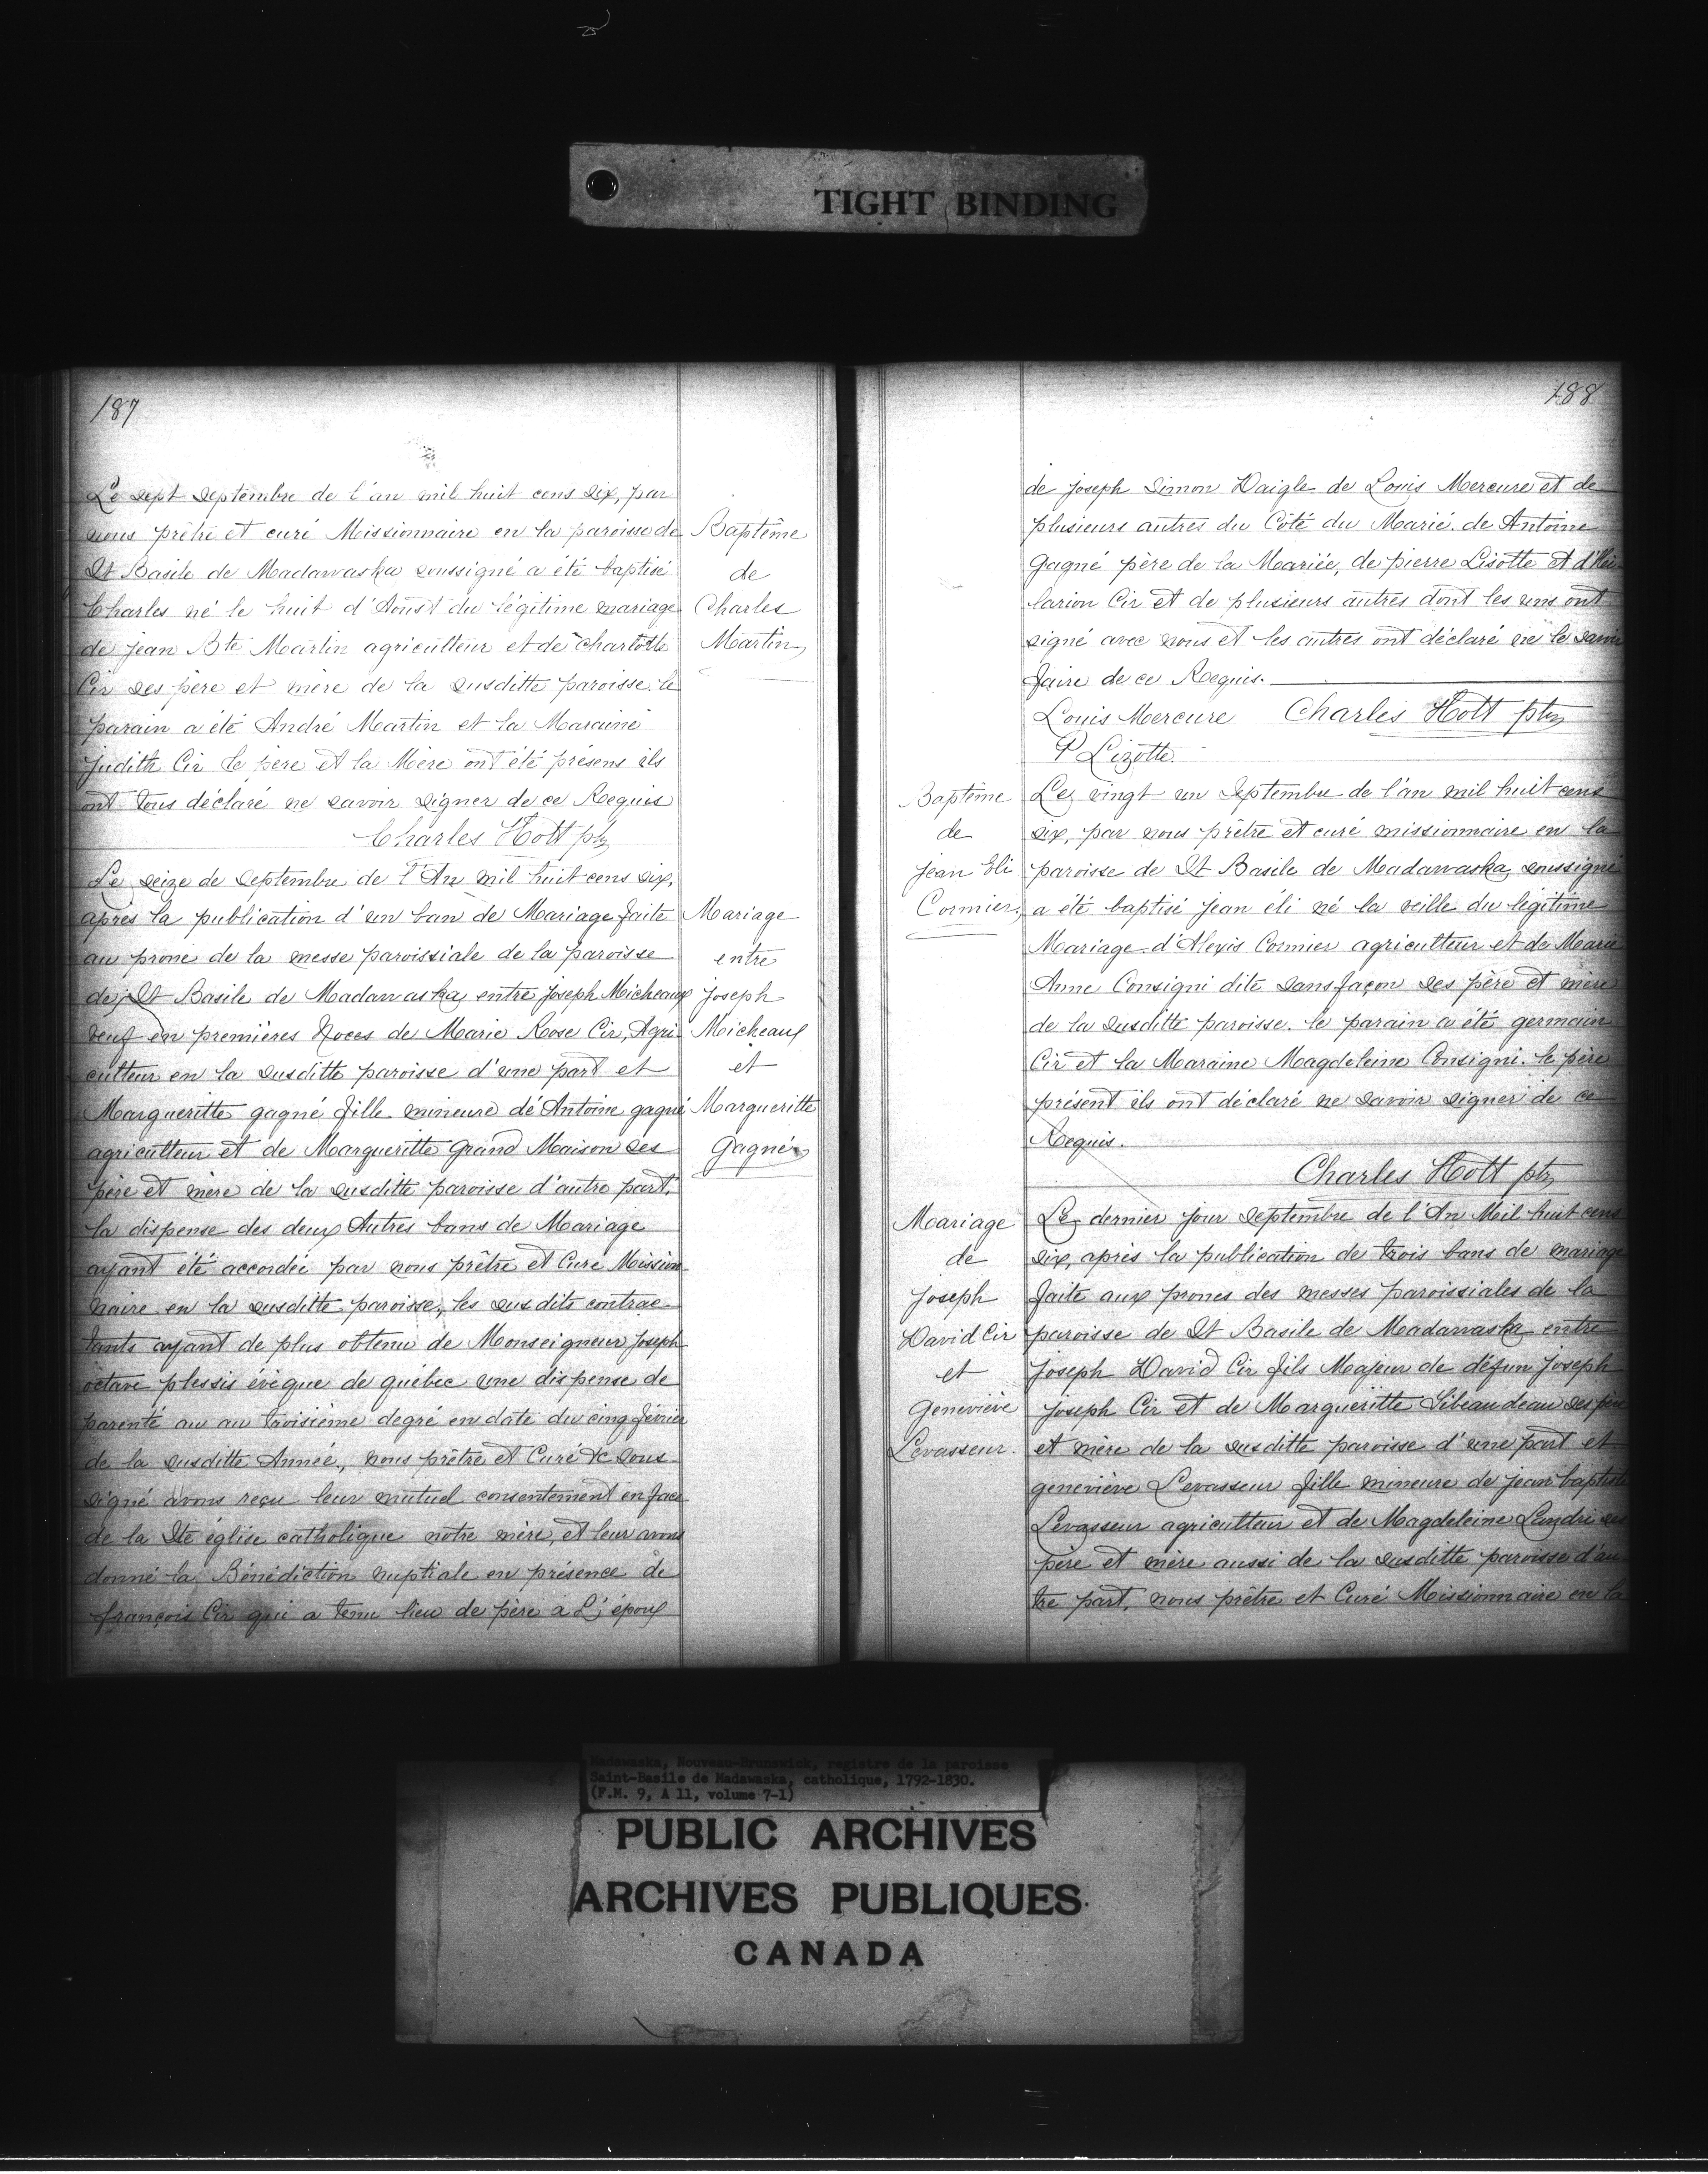 TIGHT BINDING
187
Le sept septembre de l'an mil huit cens six, par
nous prêtre et curé Missionnaire en la paroisse de
St Basile de Madawaska soussigné a été baptisé
Charles né le huit d'Aoust du légitime mariage
de jean Bte Martin agriculteur et de Charlotte
Cir ses père et mère de la susditte paroisse. le
parain a été André Martin et la Maraine
judith Cir le père et la Mère ont été présens ils
ont tous déclaré ne savoir signer de ce Requis
Charles Hott ptr
Baptême
de
Charles
Martin
Le seize de septembre de l'An mil huit cens six,
après la publication d'un ban de Mariage faite
au prone de la messe paroissiale de la paroisse
de St Basile de Madawaska entre joseph Micheaux
veuf en premières Noces de Marie Rose Cir, Agri-
culteur en la susditte paroisse d'une part et
Margueritte gagné fille mineure de Antoine gagné
agriculteur et de Margueritte Grand Maison ses
père et mère de la susditte paroisse d'autre part.
la dispense des deux Autres bans de Mariage
ayant été accordée par nous prêtre et Curé Mission-
naire en la susditte paroisse, les susdits contrac-
tants ayant de plus obtenu de Monseigneur joseph
octave plessis évêque de québec une dispense de
parenté au au troisième degré en date du cinq février
de la susditte Année, nous prêtre et Curé &c sous-
signé avons reçu leur mutuel consentement en face
de la Ste église catholique notre mère, et leur avons
donné la Bénédiction nuptiale en présence de
françois Cir qui a tenu lieu de père à L'époux
Mariage
entre
joseph
Micheaux
et
Margueritte
Gagné
188
de joseph simon Daigle de Louis Mercure et de
plusieurs autres du Côté du Marié. de Antoine
Gagné père de la Mariée, de pierre Lisotte et d'Hi-
larion Cir et de plusieurs autres dont les uns ont
signé avec nous et les autres ont déclaré ne le savoir
faire de ce Requis.
Louis Mercure Charles Hott ptr
P Lizotte.
Baptême
de
jean Eli
Cormier.
Le vingt un septembre de l'an mil huit cens
six, par nous prêtre et curé missionnaire en la
paroisse de St Basile de Madawaska soussigné
a été baptisé jean éli né la veille du légitime
Mariage d'Alexis Cormier agriculteur et de Marie
Anne Consigni dite sans façon ses père et mère
de la susditte paroisse. le parain a été germain
Cir et la Maraine Magdeleine Consigni. le père
présent ils ont déclaré ne savoir signer de ce
Requis.
Charles Hott ptr
Mariage
de
joseph
David Cir
et
Geneviève
Levasseur.
Le dernier jour septembre de l'An Mil huit cens
six, après la publication de trois bans de mariage
faite aux prones des messes paroissiales de la
paroisse de St Basile de Madawaska entre
joseph David Cir fils Majeur de défun joseph
joseph Cir et de Margueritte Tibeaudeau ses père
et mère de la susditte paroisse d'une part et
geneviève Levasseur fille mineure de jean baptiste
Levasseur agriculteur et de Magdeleine Landri ses
père et mère aussi de la susditte paroisse d'au-
tre part, nous prêtre et Curé Missionnaire en la
Madawaska, Nouveau-Brunswick, registre de la paroisse
Saint-Basile de Madawaska, catholique, 1792-1830.
(F.M. 9, A 11, volume 7-1)
PUBLIC ARCHIVES
ARCHIVES PUBLIQUES
CANADA